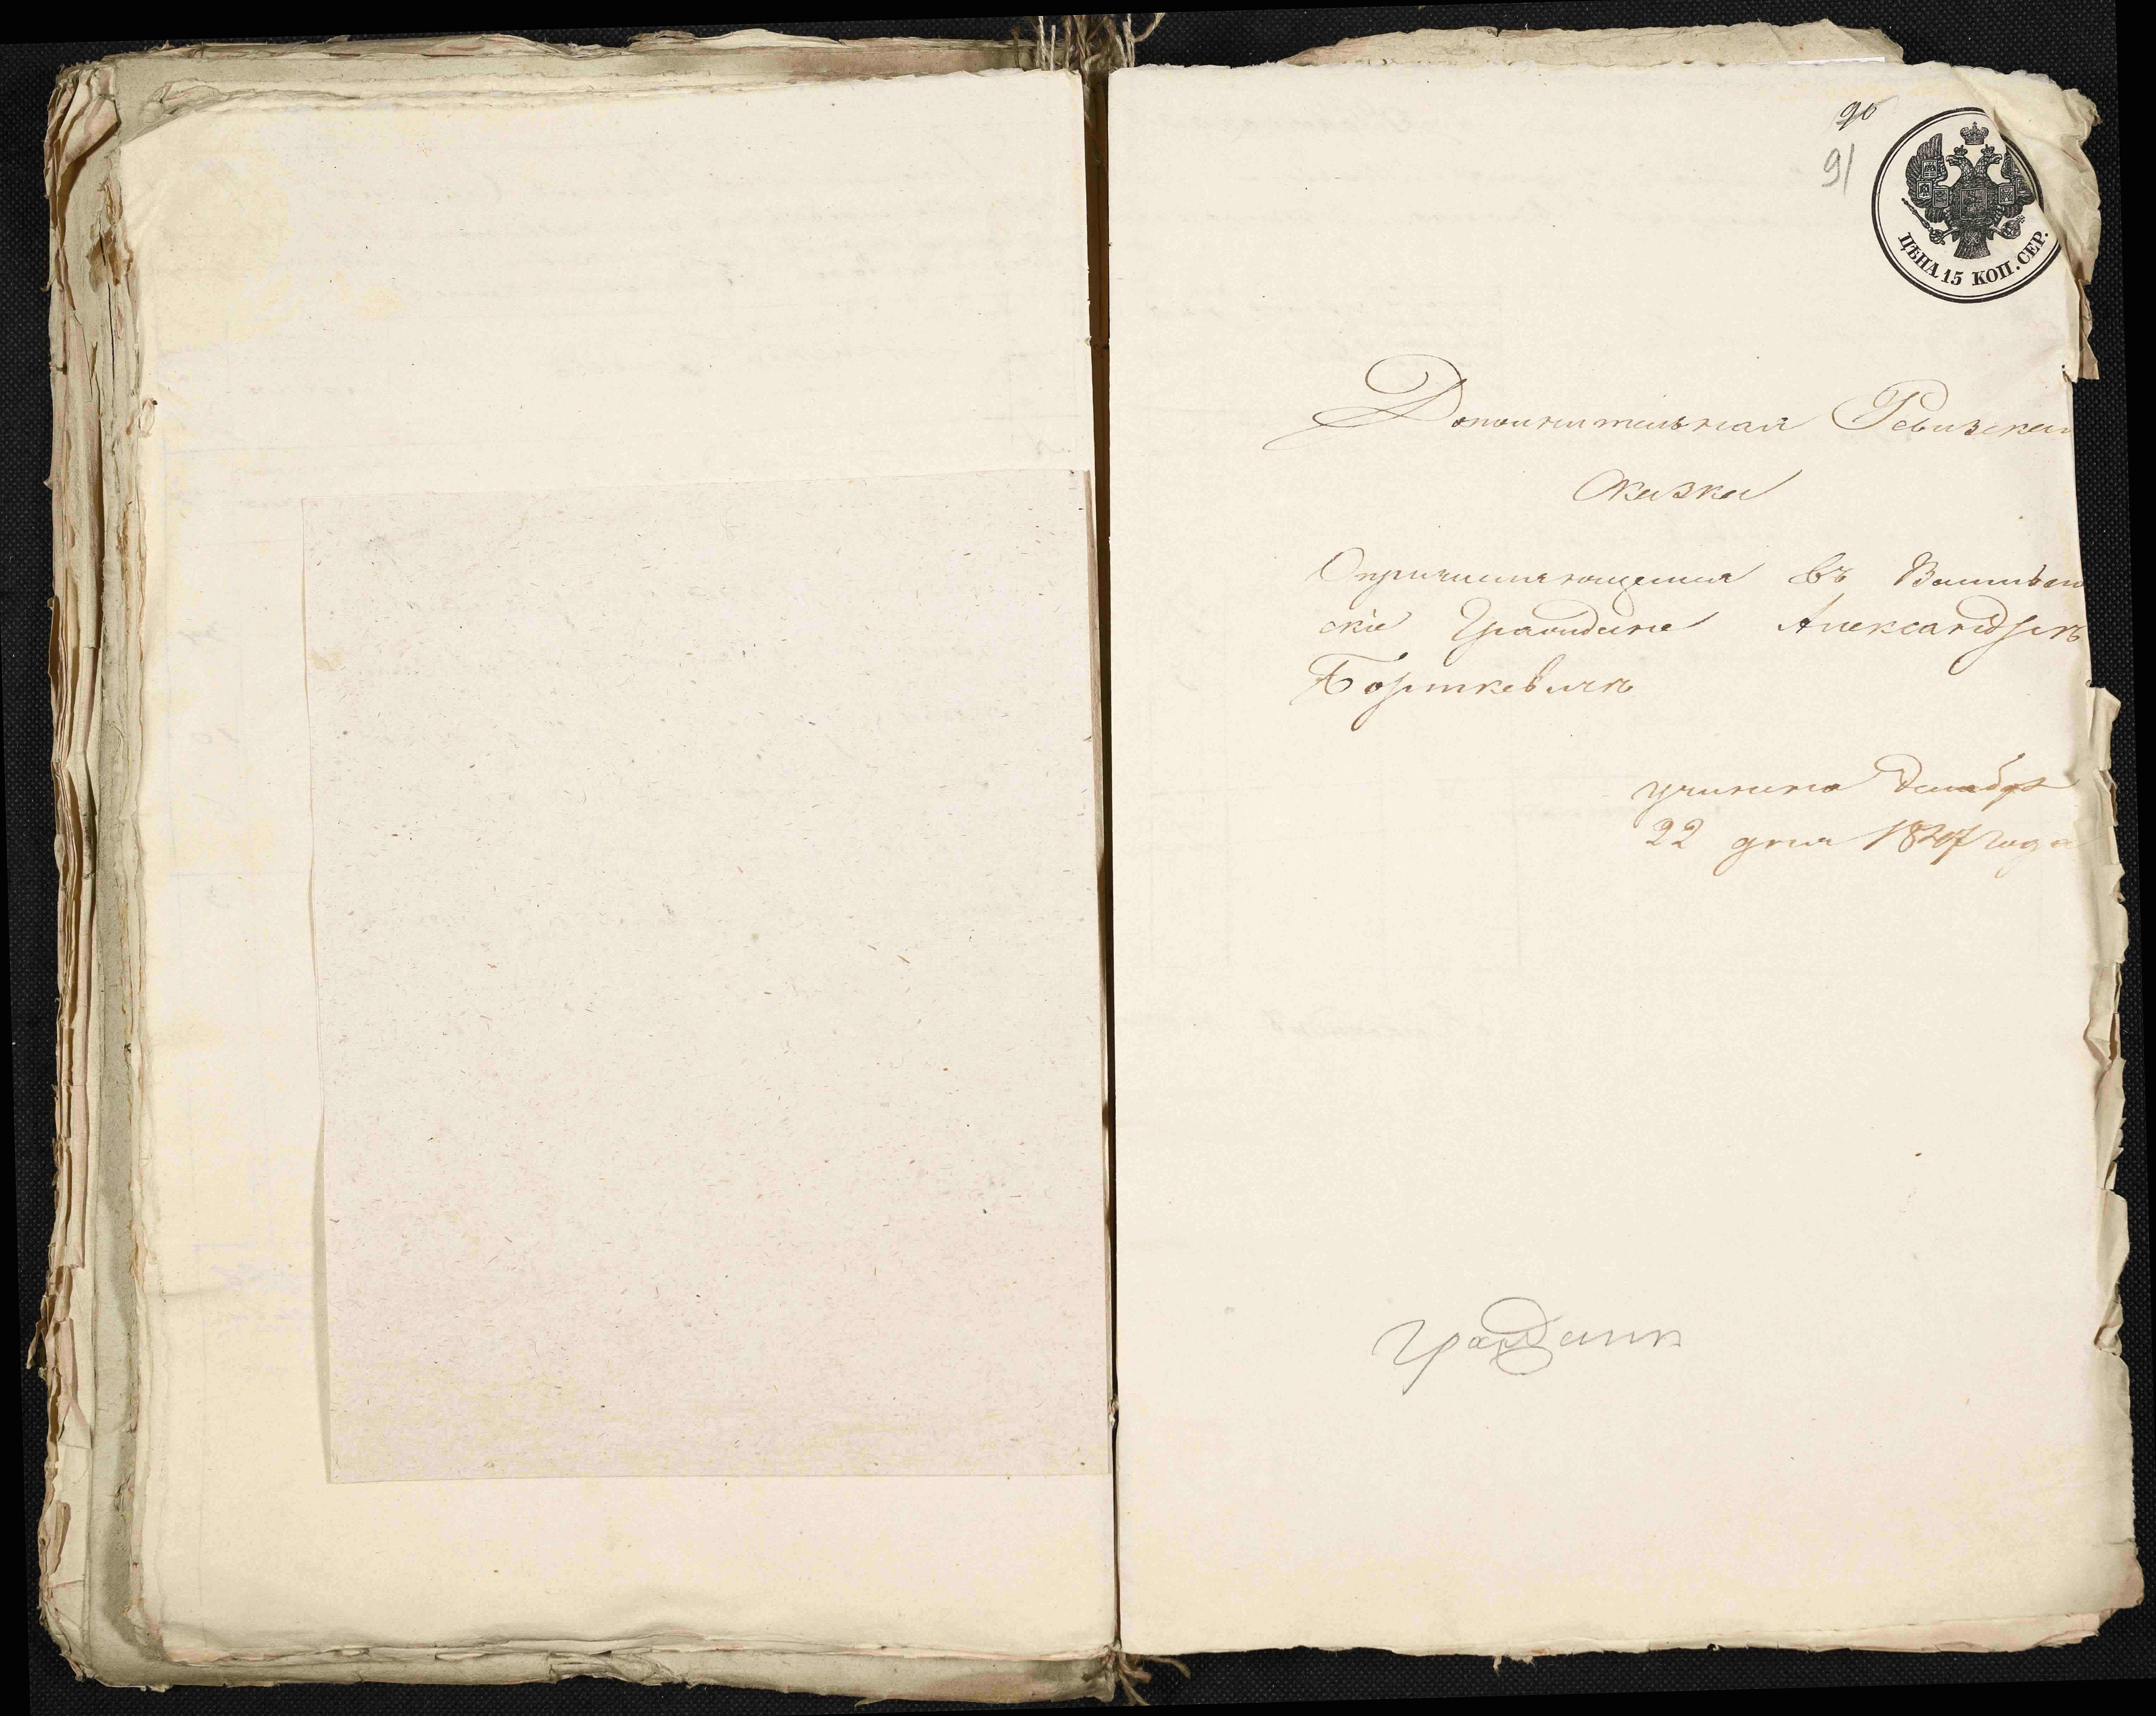 90
91
ЦѢНА 15 КОП. СЕР.
Дополнительная Ревизская
Сказка
О причисляющемся въ Вилькомир
скіе Граждане Александръ
Борткевичъ
учинена Декабря
22 дня 1847 года
Гражданъ